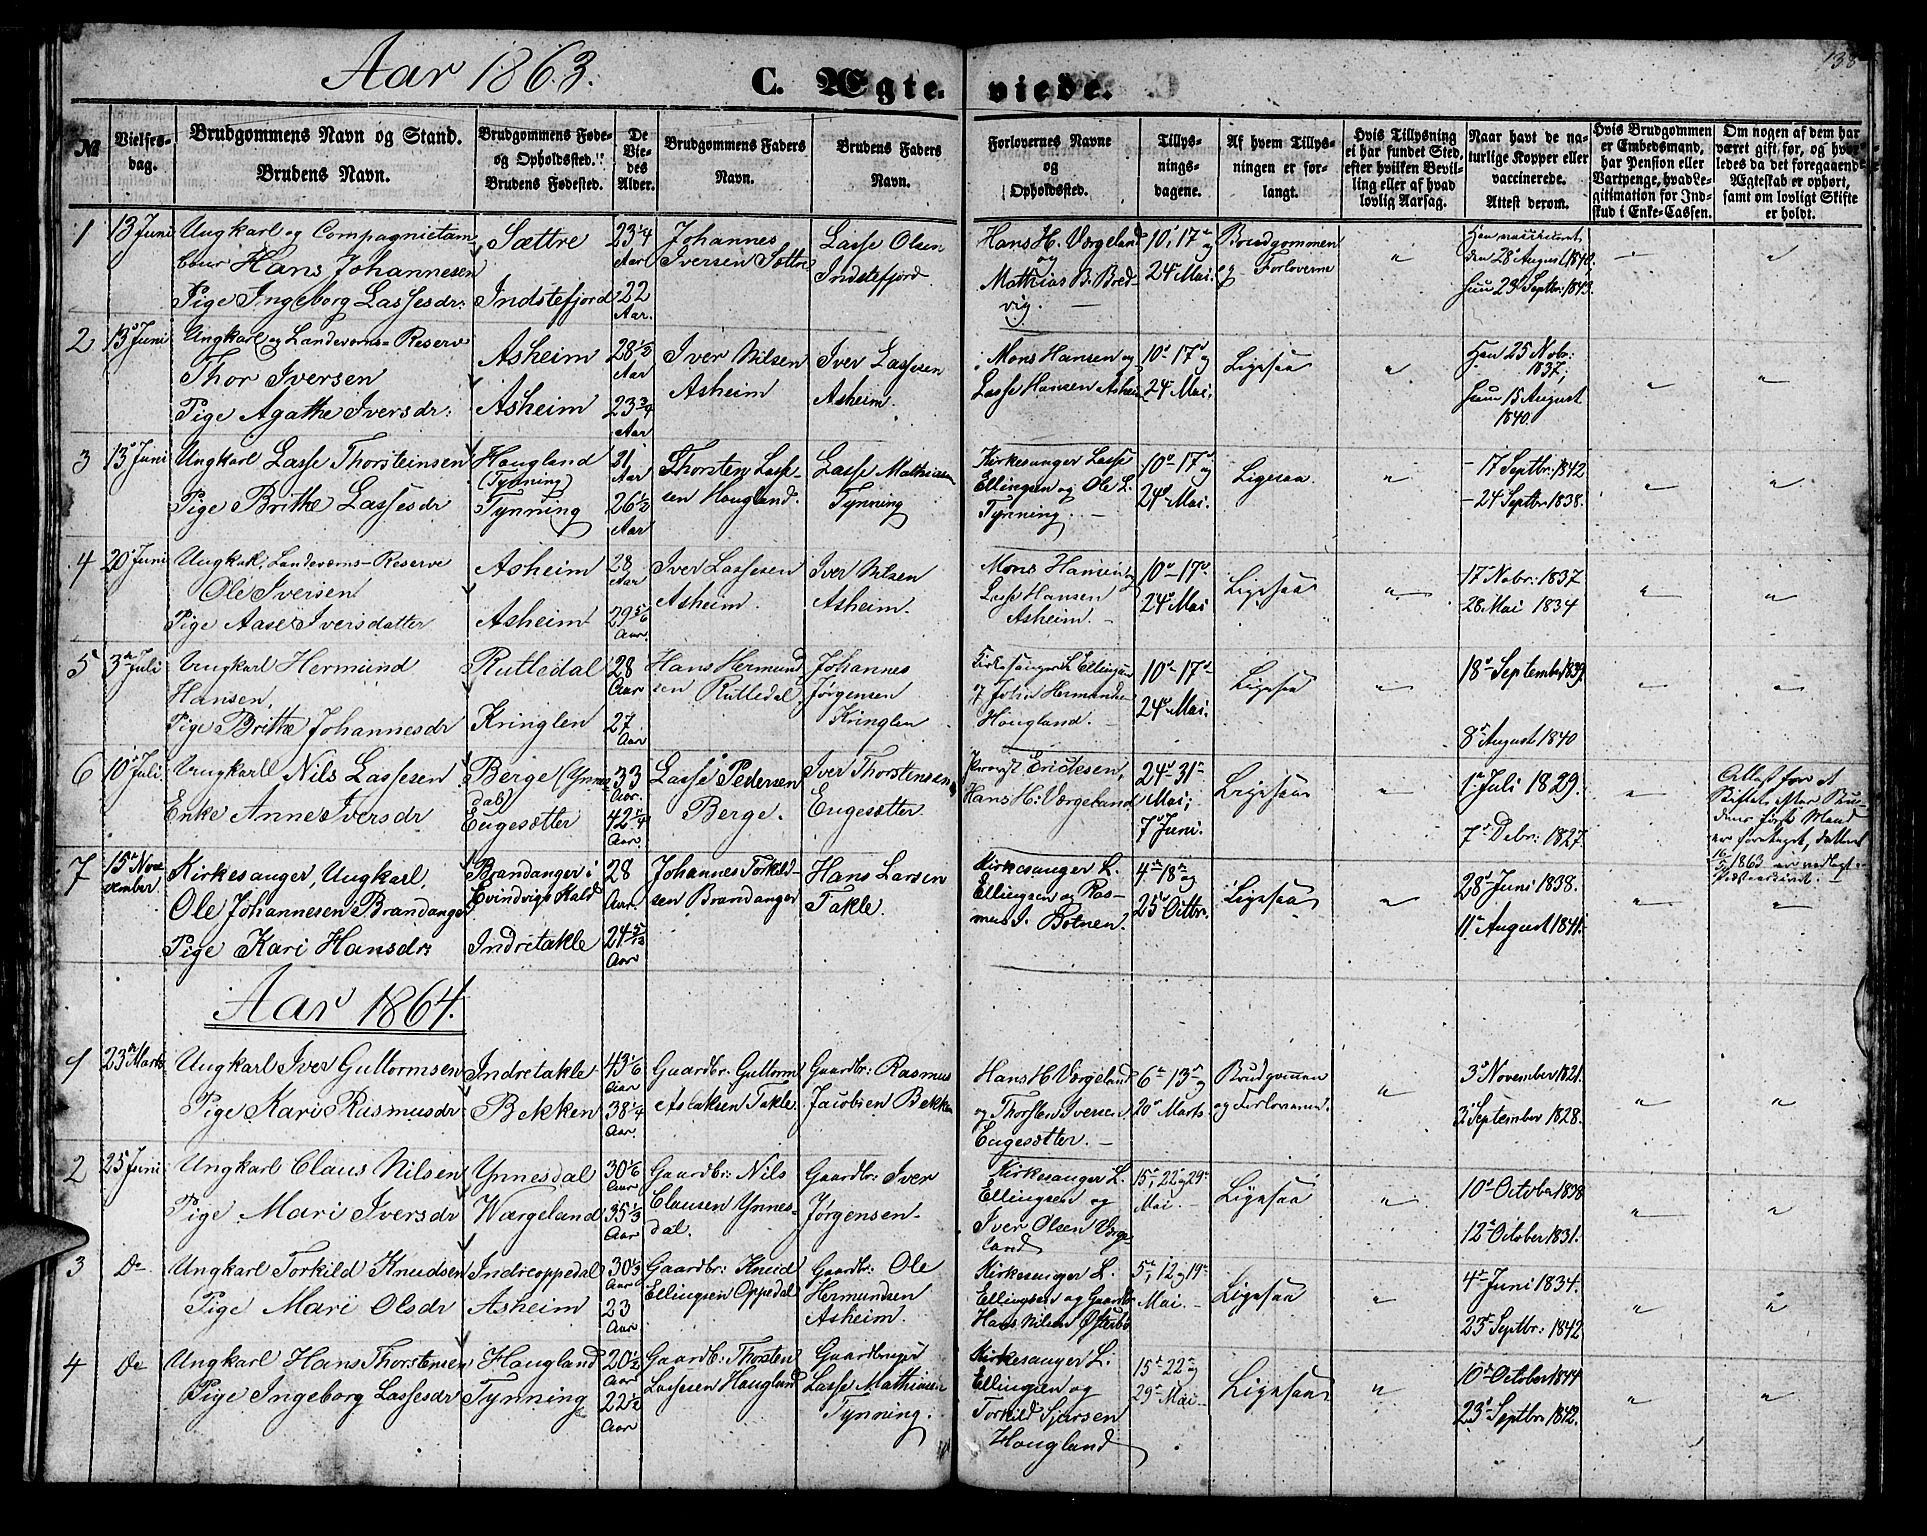 138
Aar 1863.
C. Ægte-
viede.
№
Vielses-
dag.
Brudgommens Navn og Stand.
Brudens Navn.
Brudgommens Føde-
og Opholdssted.
Brudens Fødested.
De
Vie-
des
Alder.
Brudgommens Faders
Navn.
Brudens Faders
Navn.
Forlovernes Navne
og
Opholdssted.
Tillys-
nings-
dagene.
Af hvem Tillys-
ningen er for-
langt.
Hvis Tillysning
ei har fundet Sted,
efter hvilken Bevil-
ling eller af hvad
lovlig Aarsag.
Naar havt de na-
turlige Kopper eller
vaccinerede.
Attest derom.
Hvis Brudgommen
er Embedsmand,
har Pension eller
Vartpenge, hvad Le-
gitimation for Ind-
skud i Enke-Cassen.
Om nogen af dem har
været gift før, og hvor-
ledes da det foregaaende
Ægteskab er ophørt,
samt om lovligt Skifte
er holdt.
1 13 Juni
Ungkarl og Compagnietam-
bour Hans Johannesen
Pige Ingeborg Lassesdr:
Sættre
Indstefjord
23 1/4
Aar
22
Aar.
Johannes
Iversen Sættre
Lasse Olsen
Indstefjord.
Hans H. Værgeland
og
Mathias B. Bred-
vig.
10, 17 og
24 Mai.
Brudgommen
og Forloverne
"
Han vaccineret
den 28 August 1840.
hun 23 Septbr: 1843.
"
"
2 13 Juni
Ungkarl og Landeværns-Reserve
Thor Iversen
Pige Agathe Iversdr:
Asheim
Asheim
28 1/2
Aar
23 3/4
Aar
Iver Nilsen
Asheim
Iver Lassesen
Asheim.
Mons Hansen og
Lasse Hansen Asheim
10 - 17 og
24 Mai.
Ligesaa
"
Han 25 Nobr:
1837,
hun 15 August
1840.
"
"
3 13 Juni
Ungkarl Lasse Thorsteinsen
Pige Brithe Lassesdr
Haugland
(Tynning)
Tynning
21
Aar
26 1/2
Aar
Thorsten Lasse-
sen Haugland.
Lasse Mathiasen
Tynning
Kirkesanger Lasse
Ellingsen og Ole L.
Tynning.
10 - 17 og
24 Mai.
Ligesaa
"
- 17 Septbr: 1842.
- 24 Septbr 1838.
"
"
4 20 Juni
Ungkarl, Landeværns-Reserve
Ole Iversen
Pige Aase Iversdatter
Asheim
Asheim
28
Aar
29 5/6
Aar.
Iver Lassesen
Asheim.
Iver Nilsen
Asheim.
Mons Hansen og
Lasse Hansen
Asheim.
10 - 17
24 Mai
Ligesaa
"
17 Nobr: 1837
28 Mai 1834
"
"
5 3 Juli
Ungkarl Hermund
Hansen,
Pige Brithe Johannesdr
Rutledal
Kringlen
28
Aar
27
Aar
Hans Hermund-
sen Rutledal
Johannes
Jørgensen
Kringlen
Kirkesanger L. Ellingsen
og John Hermundsen
Haugland.
10 - 17
24 Mai.
Ligesaa
"
18 September 1839
8 August 1840
"
"
6 10 Juli
Ungkarl Nils Lassesen
Enke Anne Iversdr
Berge (Ynnes-
dal)
Eugesætter
33
Aar.
42 1/4
Aar.
Lasse Pedersen
Berge.
Iver Thorstensen
Eugesætter
Provst Ericksen,
Hans H: Værgeland
24 - 31
Mai;
7 Juni.
Ligesaa
"
1 Juli 1829.
7 Debr: 1827
"
Attest for at
Skifte efter Bru-
dens først Mand
er foretaget, dateret
1863 er vedlagt
7 15 Nov-
vember.
Kirkesanger, Ungkarl,
Ole Johannesen Brandanger
Pige Kari Hansdr:
Brandanger i
Evindvigs Kald
Indretakle
28
Aar.
24 5/12
Aar
Johannes Torkild-
sen Brandanger
Hans Larsen
Takle.
Kirkesanger L.
Ellingsen og Ras-
mus I. Botnen.
4 - 18 og
25 Octbr.
Ligesaa
"
28 Juni 1838.
11 August 1841.
"
"
Aar 1864.
1 23 Marts
Ungkarl Iver Guttormsen
Pige Kari Rasmusdr
Indretakle
Bekken
43 1/6
Aar
38 1/4
Aar.
Gaardbr. Guttorm
Aslaksen Takle.
Gaardbr: Rasmus
Jacobsen Bekken
Hans H. Værgeland
og Thorsten Iversen
Eugesætter.
6 - 13 og
20 Marts
Brudgommen
og Forloverne.
"
3 November 1821.
3 September 1828.
"
"
2 25 Juni
Ungkarl Claus Nilsen
Pige Mari Iversdr
Ynnesdal
Wærgeland
30 1/6
Aar
35 1/3
Aar
Gaardbr: Nils
Clausen Ynnes-
dal.
Gaardbr: Iver
Jørgensen
Kirkesanger L.
Ellingsen og
Iver Olsen Værge-
land
15, 22 og 29
Mai.
Ligesaa
"
10 October 1838
12 October 1831.
"
"
3 Do
Ungkarl Torkild Knudsen
Pige Mari Olsdr
Indreoppedal
Asheim
30 1/3
Aar
23
Aar
Gaardbr: Knud
Ellingsen Oppedal
Gaardbr: Ole
Hermundsen
Asheim.
Kirkesanger L.
Ellingsen og Gaardbr
Hans Nilsen Østerbø
5, 12 og 19
Mai.
Ligesaa
"
4 Juni 1834.
23 Septbr: 1842
"
"
4 Do
Ungkarl Hans Thorstensen
Pige Ingeborg Lassesdr
Haugland
Tynning
20 1/2
Aar
22 1/2
Aar
Gaardb: Thorsten
Lassesen Haugland
Gaardbruger
Lasse Mathiasen
Tynning.
Kirkesanger L.
Ellingsen og
Torkild Sjursen
Haugland
15 - 22 og
29 Mai
Ligesaa
"
10 October 1844
23 Septbr: 1842.
"
"